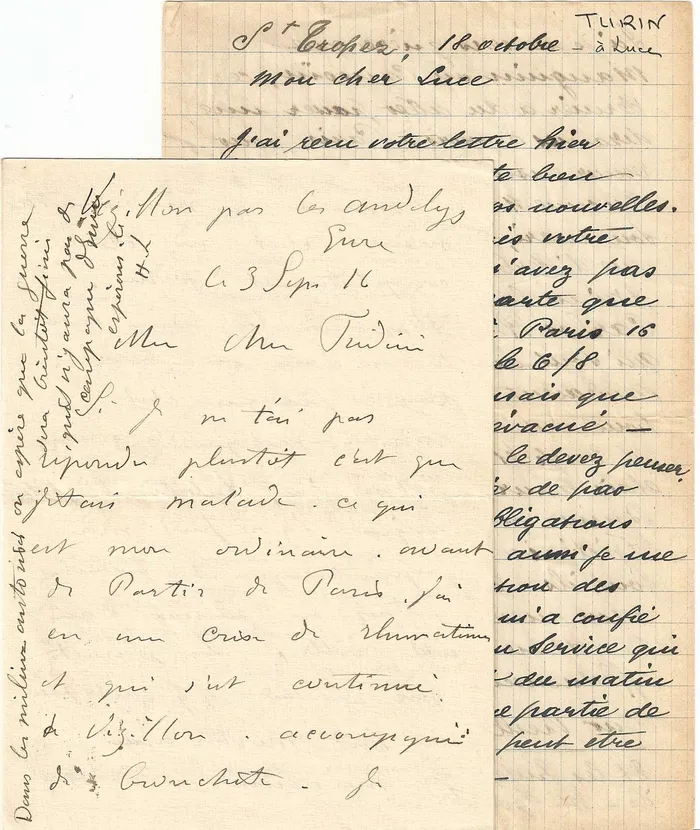 TURIN
à Luce
St Tropez, 18 octobre -
Mon cher Luce
J'ai reçu votre lettre hier
te bien
os nouvelles.
ès votre
n'avez pas
arte que
Paris 16
le 6/8
mais que
évacué —
le devez penser,
de pas
bligations
aussi je me
sion des
m'a confié
Service qui
du matin
e partie de
peut etre
par les andelys
Eure
le 3 Sept 16
Mon cher
Je ne t'ai pas
repondu plustôt c'est que
jetais malade. ce qui
est mon ordinaire. avant
de Partir de Paris, j'ai
eu une crise de rhumatisme
et qui s'est continué
à Vezillon. accompagné
de bronchite. Je
Dans les milieux autorisés on espère que la guerre
sera bientôt finie
et qu'il n'y aura pas de
campagne d'hiver
espérons le
H L